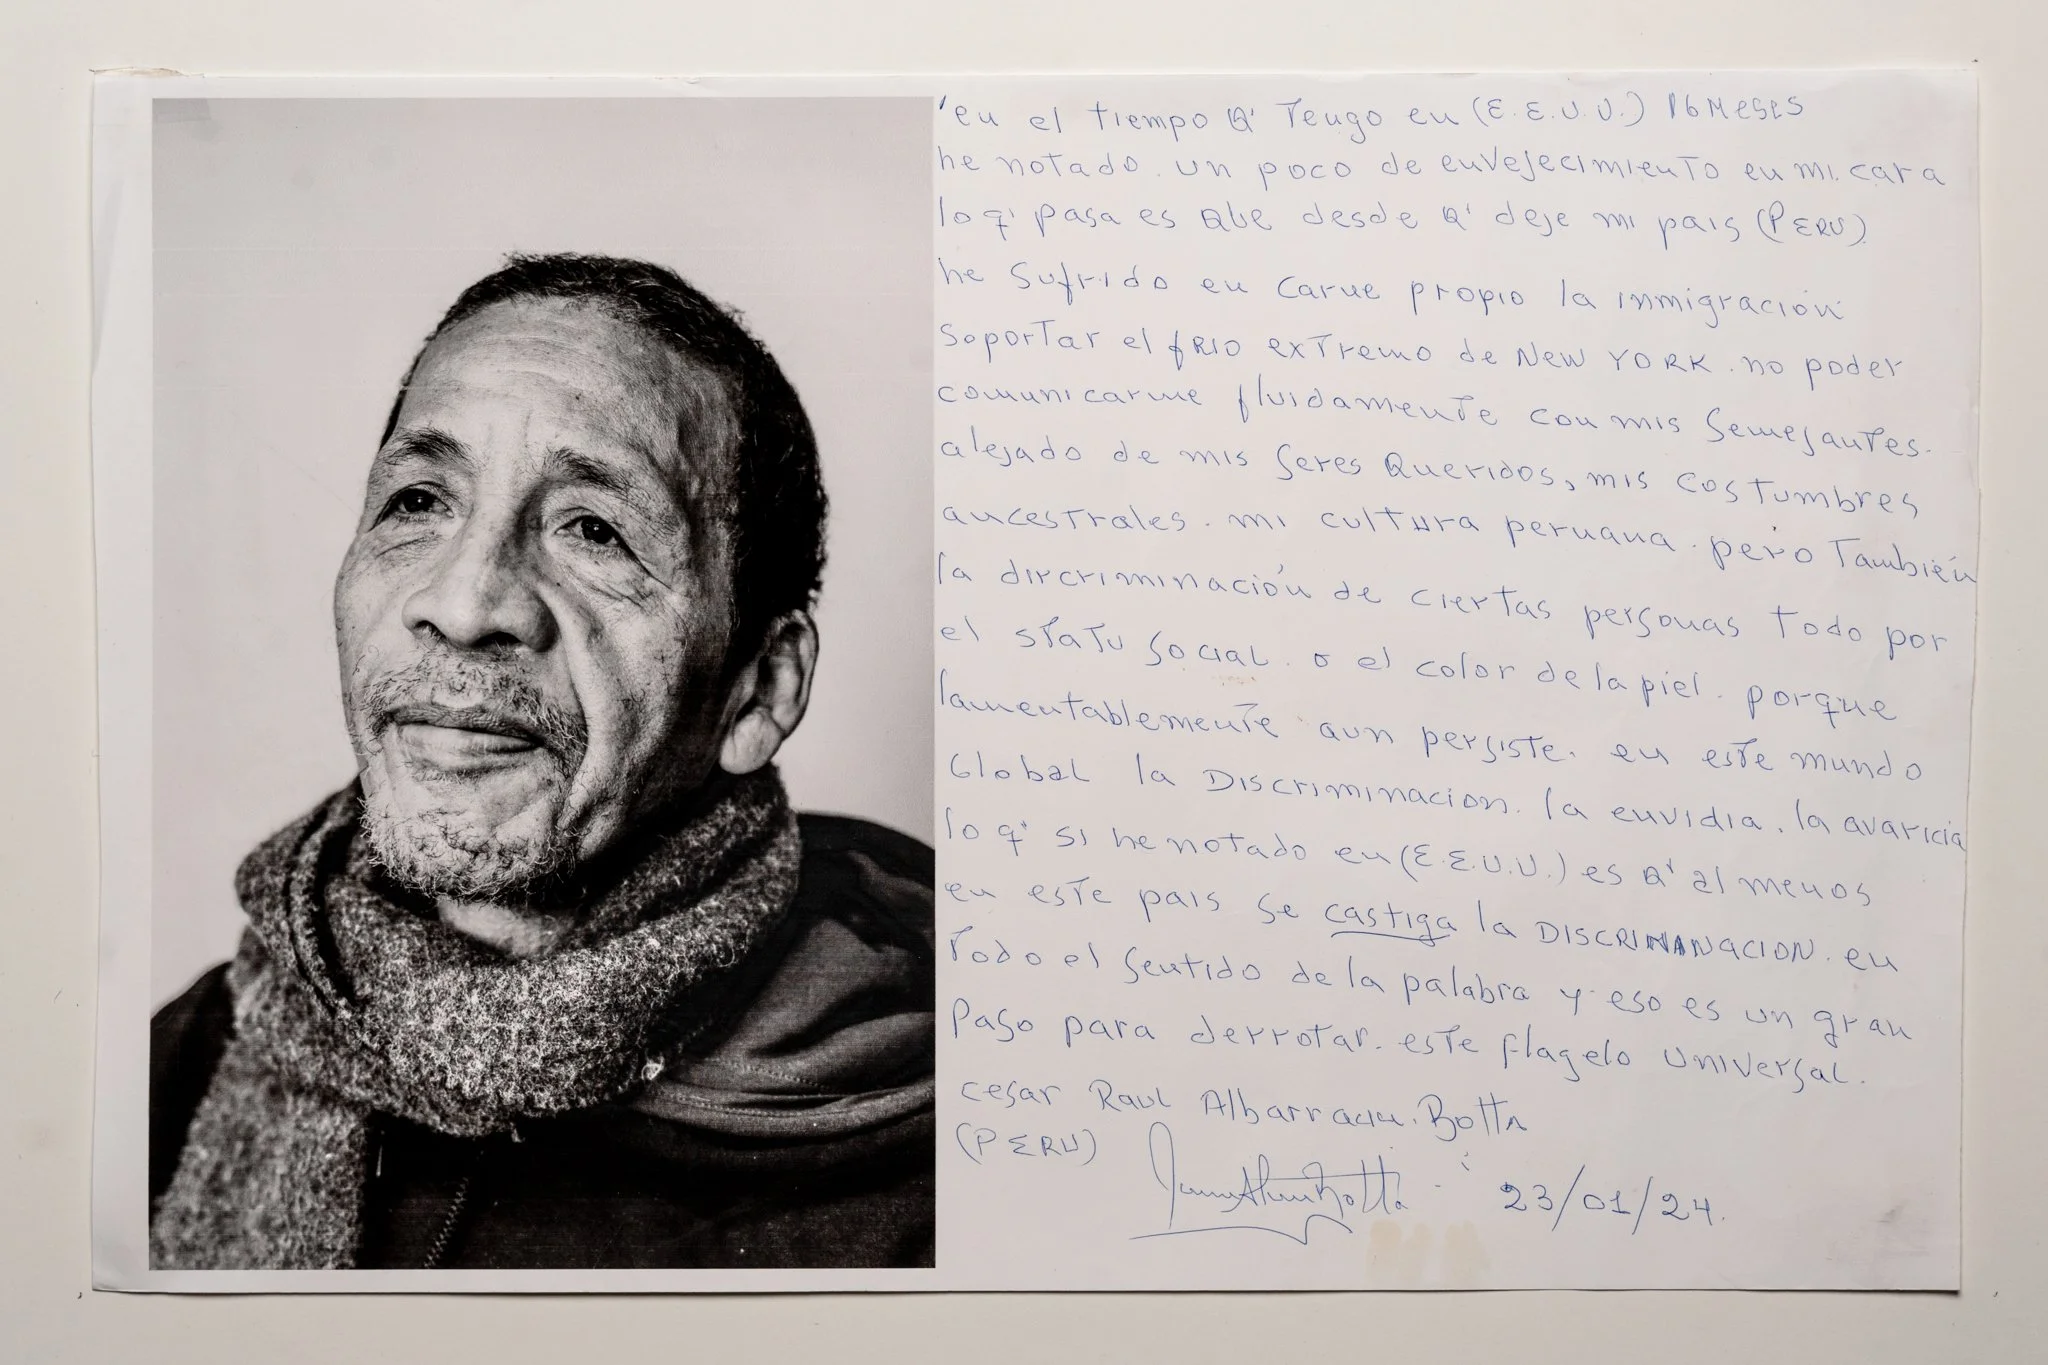 'en el tiempo Q' Tengo en (E.E.U.U.) 16 Meses
he notado. un poco de envejecimienTo en mi. cara
lo q' pasa es Que desde Q' deje mi pais (PERU).
he Sufrido en carne propio la inmigración
SoporTar el fRIO exTremo de NEW YORK. no poder
comunicarme fluidamenTe con mis SemejanTes.
alejado de mis Seres Queridos, mis cosTumbres
ancesTrales. mi culTura peruana. pero También
la dircriminación de cierTas personas Todo por
el sTaTu SociaL. o el color de la piel. porque
lamentablemenTe aun persisTe. en esTe mundo
GlobaL la DiscriminacioN. la envidia. la avaricia
lo q' si he notado en (E.E.U.U.) es Q' al menos
en esTe pais se castiga la DISCRIMINACION. en
Todo el SenTido de la palabra y eso es un gran
Paso para derroTar. esTe flagelo UniversaL.
cesar RauL Albarracin. Botta
(PERU)
23/01/24.